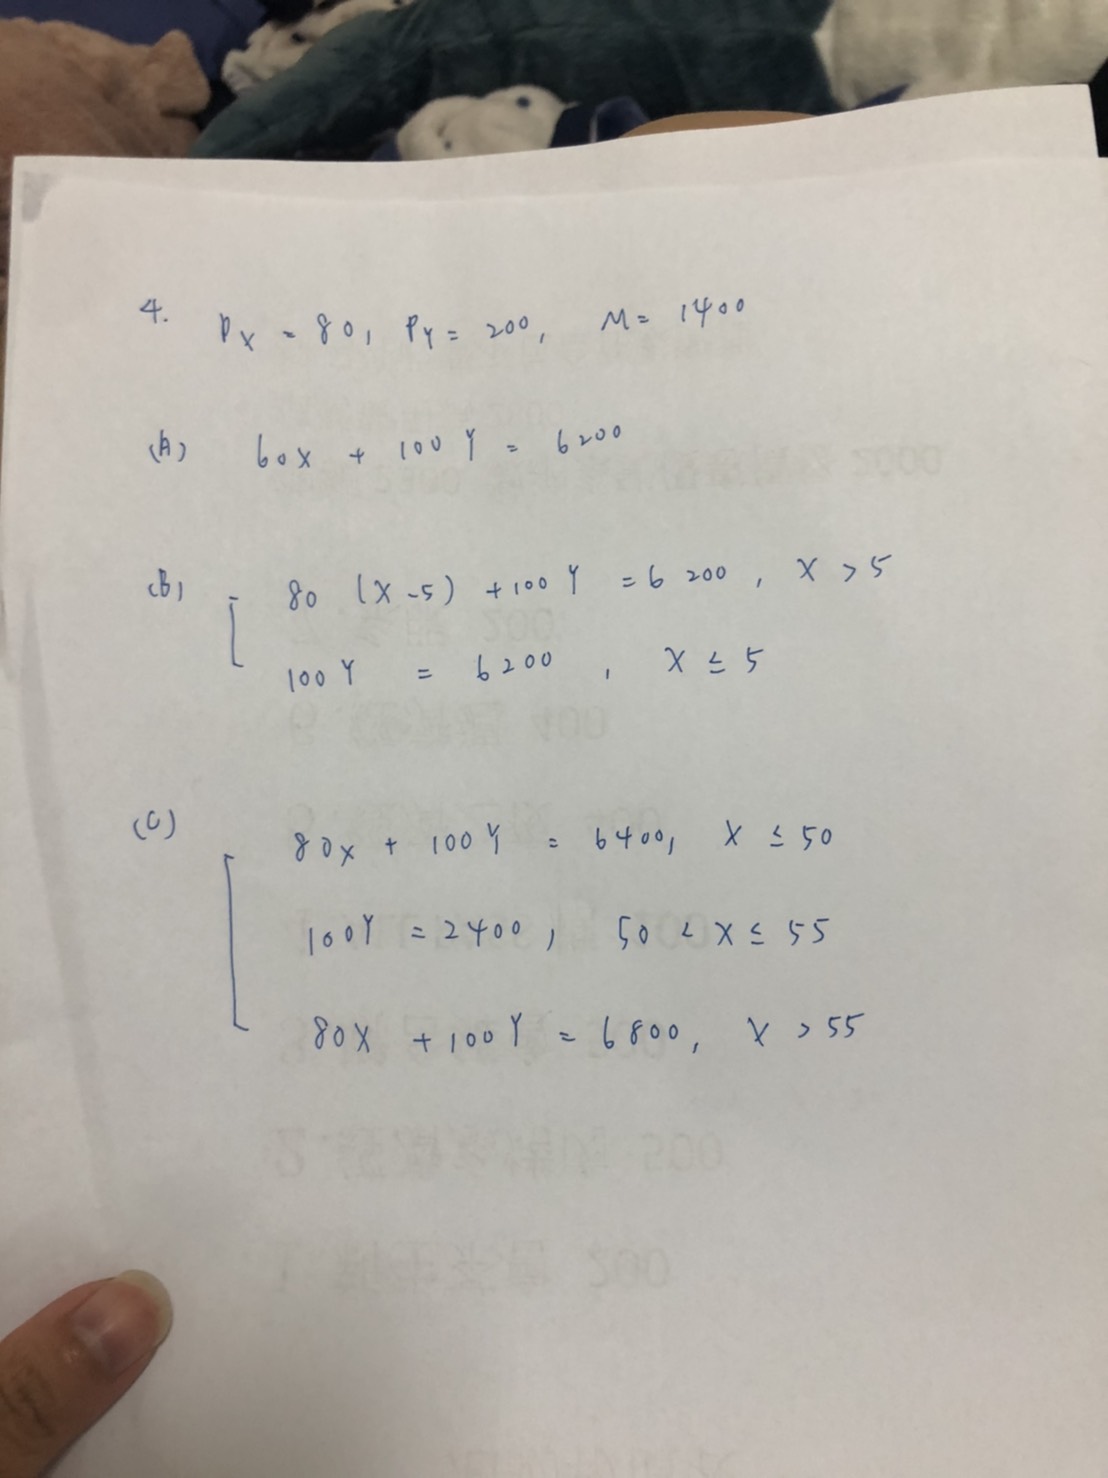 4. Px = 80, PY = 200, M = 1400
(A) 60X + 100Y = 6200
(B) 80 (X-5) + 100Y = 6200, X > 5
100Y = 6200, X ≤ 5
(C) 80X + 100Y = 6400, X ≤ 50
100Y = 2400, 50 < X ≤ 55
80X + 100Y = 6800, X > 55